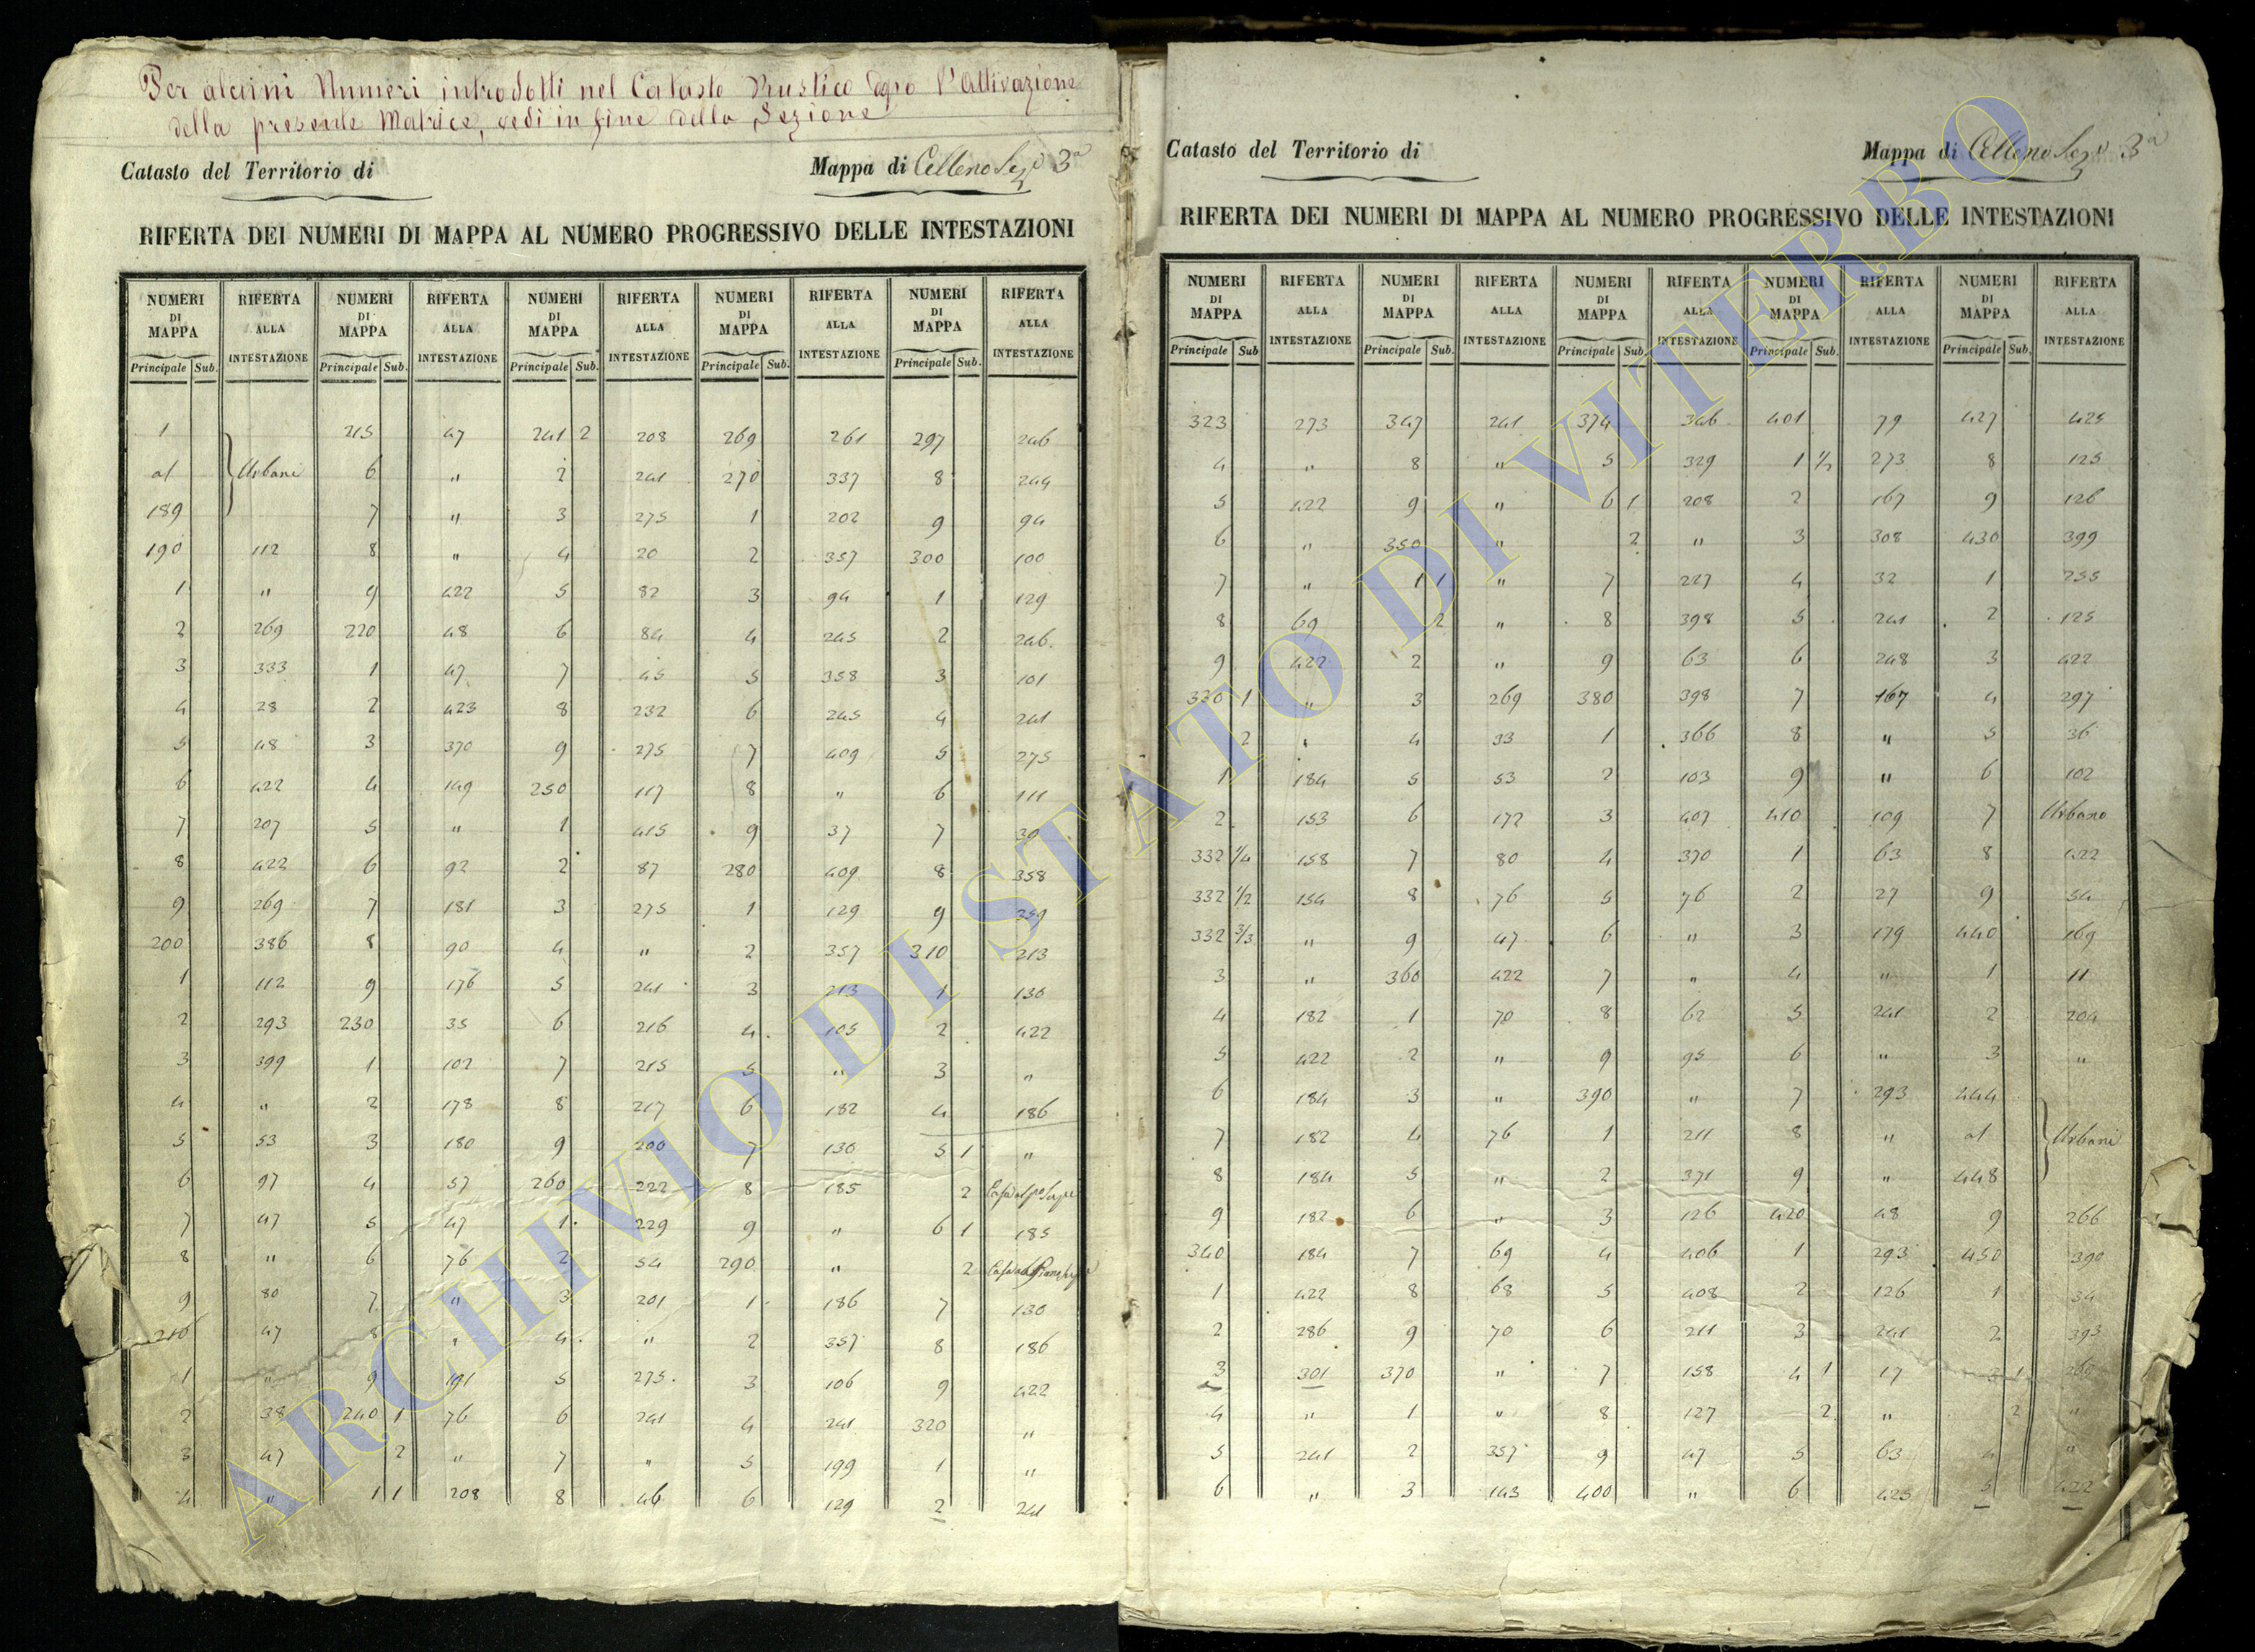 Per alcuni Numeri introdotti nel Catasto Rustico dopo l'Attivazione
della presente Matrice, vedi in fine della Sezione
Catasto del Territorio di Mappa di Celleno Sez.e 3a
RIFERTA DEI NUMERI DI MAPPA AL NUMERO PROGRESSIVO DELLE INTESTAZIONI
NUMERI RIFERTA NUMERI RIFERTA NUMERI RIFERTA NUMERI RIFERTA NUMERI RIFERTA
DI DI DI DI DI
MAPPA ALLA MAPPA ALLA MAPPA ALLA MAPPA ALLA MAPPA ALLA
Principale Sub. INTESTAZIONE Principale Sub. INTESTAZIONE Principale Sub. INTESTAZIONE Principale Sub. INTESTAZIONE Principale Sub. INTESTAZIONE
1 215 47 241 2 208 269 261 297 246
al Urbani 6 " 2 241 270 337 8 244
189 7 " 3 275 1 202 9 94
190 112 8 " 4 20 2 357 300 100
1 " 9 422 5 82 3 94 1 129
2 269 220 48 6 84 4 245 2 246
3 333 1 47 7 45 5 358 3 101
4 28 2 423 8 232 6 245 4 241
5 48 3 370 9 275 7 409 5 275
6 422 4 149 250 117 8 " 6 111
7 207 5 " 1 415 9 37 7 30
8 422 6 92 2 87 280 409 8 358
9 269 7 181 3 275 1 129 9 259
200 386 8 90 4 " 2 357 310 213
1 112 9 176 5 241 3 213 1 130
2 293 230 35 6 216 4 105 2 422
3 399 1 102 7 215 5 " 3 "
4 " 2 178 8 217 6 182 4 186
5 53 3 180 9 200 7 130 5 1 "
6 97 4 57 260 222 8 185 2
7 47 5 47 1 229 9 " 6 1 185
8 " 6 76 2 54 290 " 2
9 80 7 " 3 201 1 186 7 130
210 47 8 " 4 " 2 357 8 186
1 " 9 191 5 275 3 106 9 422
2 38 240 1 76 6 241 4 241 320 "
3 47 2 " 7 " 5 199 1 "
4 " 1 1 208 8 46 6 129 2 241
Catasto del Territorio di Mappa di Celleno Sez.e 3a
RIFERTA DEI NUMERI DI MAPPA AL NUMERO PROGRESSIVO DELLE INTESTAZIONI
NUMERI RIFERTA NUMERI RIFERTA NUMERI RIFERTA NUMERI RIFERTA NUMERI RIFERTA
DI DI DI DI DI
MAPPA ALLA MAPPA ALLA MAPPA ALLA MAPPA ALLA MAPPA ALLA
Principale Sub INTESTAZIONE Principale Sub. INTESTAZIONE Principale Sub. INTESTAZIONE Principale Sub. INTESTAZIONE Principale Sub. INTESTAZIONE
323 273 347 241 374 346 401 79 427 425
4 " 8 " 5 329 1 1/2 273 8 125
5 422 9 " 6 1 208 2 167 9 126
6 " 350 " 2 " 3 308 430 399
7 " 1 1 " 7 227 4 32 1 255
8 69 2 " 8 398 5 241 2 125
9 422 2 " 9 63 6 248 3 422
330 1 " 3 269 380 398 7 167 4 297
2 " 4 33 1 366 8 " 5 36
1 184 5 53 2 103 9 " 6 102
2 153 6 172 3 407 410 109 7 Urbano
332 1/4 158 7 80 4 370 1 63 8 422
332 1/2 154 8 76 5 76 2 27 9 54
332 3/3 " 9 47 6 " 3 179 440 169
3 " 360 422 7 " 4 " 1 11
4 182 1 70 8 62 5 241 2 204
5 422 2 " 9 95 6 " 3 "
6 184 3 " 390 " 7 293 444
7 182 4 76 1 211 8 " al Urbani
8 184 5 " 2 371 9 " 448
9 182 6 " 3 126 420 48 9 266
340 184 7 69 4 406 1 293 450 390
1 422 8 68 5 408 2 126 1 34
2 286 9 70 6 211 3 241 2 393
3 301 370 " 7 158 4 1 17 3 1 269
4 " 1 " 8 127 2 " 2 "
5 241 2 357 9 47 5 63 4 "
6 " 3 143 400 " 6 425 5 422
ARCHIVIO DI STATO DI VITERBO